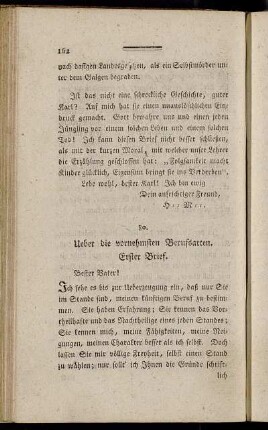 162
nach dasigen Landesgesetzen, als ein Selbstmörder un-
ter dem Galgen begraben.
Ist das nicht eine schreckliche Geschichte, guter
Karl? Auf mich hat sie einen unauslöschlichen Ein-
druck gemacht. Gott bewahre uns und einen jeden
Jüngling vor einem solchen Leben und einem solchen
Tod! Ich kann diesen Brief nicht besser schließen,
als mit der kurzen Moral, mit welcher unser Lehrer
die Erzählung geschlossen hat: „Folgsamkeit macht
Kinder glücklich, Eigensinn bringt sie ins Verderben“.
Lebe wohl, bester Karl! Ich bin ewig
Dein aufrichtiger Freund,
Ueber die vornehmsten Berufsarten.
Erster Brief.
Bester Vater!
Ich sehe es bis zur Ueberzeugung ein, daß nur Sie
im Stande sind, meinen künftigen Beruf zu bestim-
men. Sie haben Erfahrung; Sie kennen das Vor-
theilhafte und das Nachtheilige eines jeden Standes; Sie
kennen mich, meine Fähigkeiten, meine Nei-
gungen, meinen Charakter besser als ich selbst. Doch
lassen Sie mir völlige Freyheit, selbst einen Stand
zu wählen; nur soll ich Ihnen die Gründe schrift-
lich